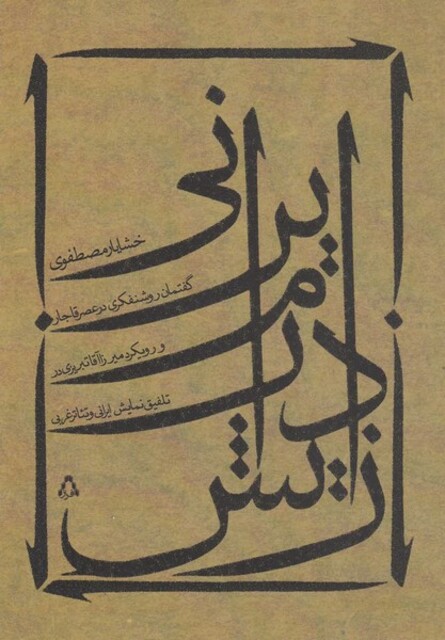 زایش
درام
ایرانی
خشایار مصطفوی
گفتمان روشنفکری در عصر قاجار
و رویکرد میرزا آقا تبریزی در
تلفیق نمایش ایرانی و تئاتر غربی